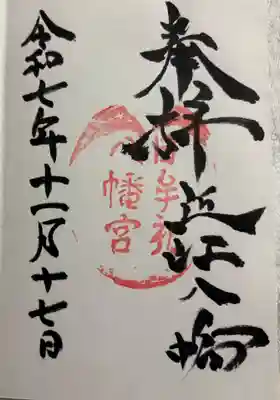 奉拝 近江八幡
日牟礼
八幡宮
令和七年十一月十七日